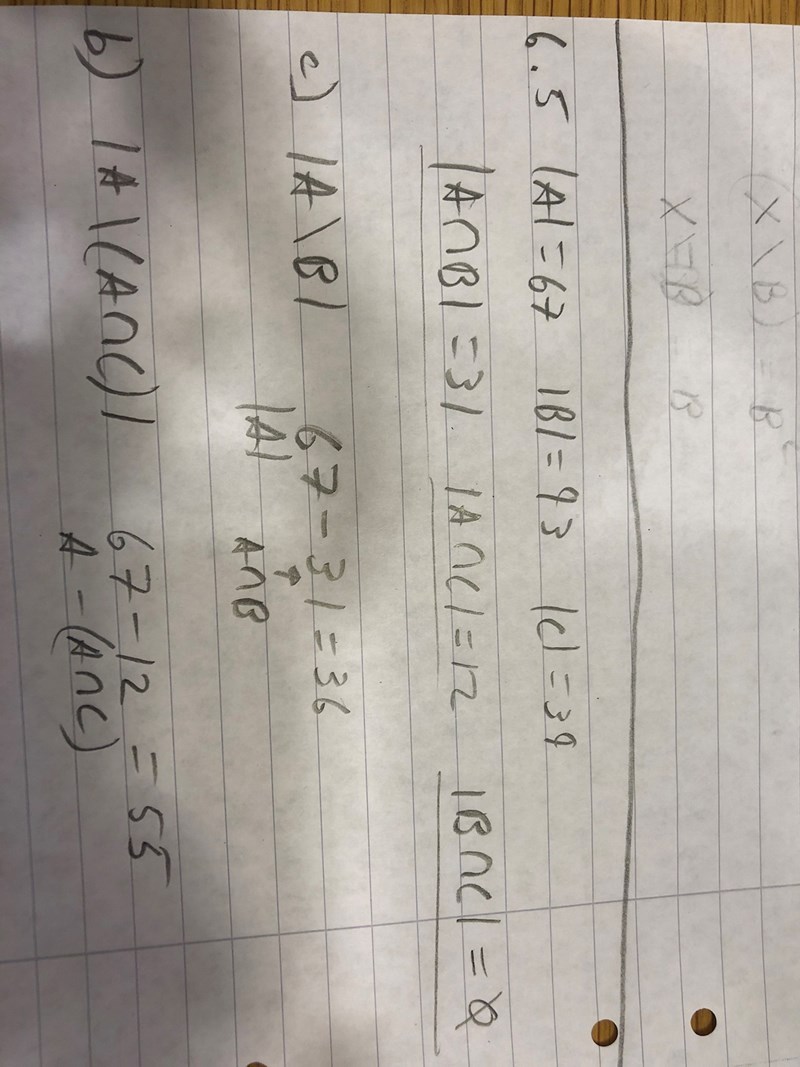 (X \ B) = B^c
X \ B = B
6.5 |A| = 67 |B| = 93 |C| = 39
|A∩B| = 31 |A∩C| = 12 |B∩C| = ∅
c) |A\B| 67 - 31 = 36
|A| A∩B
b) |A\(A∩C)| 67 - 12 = 55
A - (A∩C)